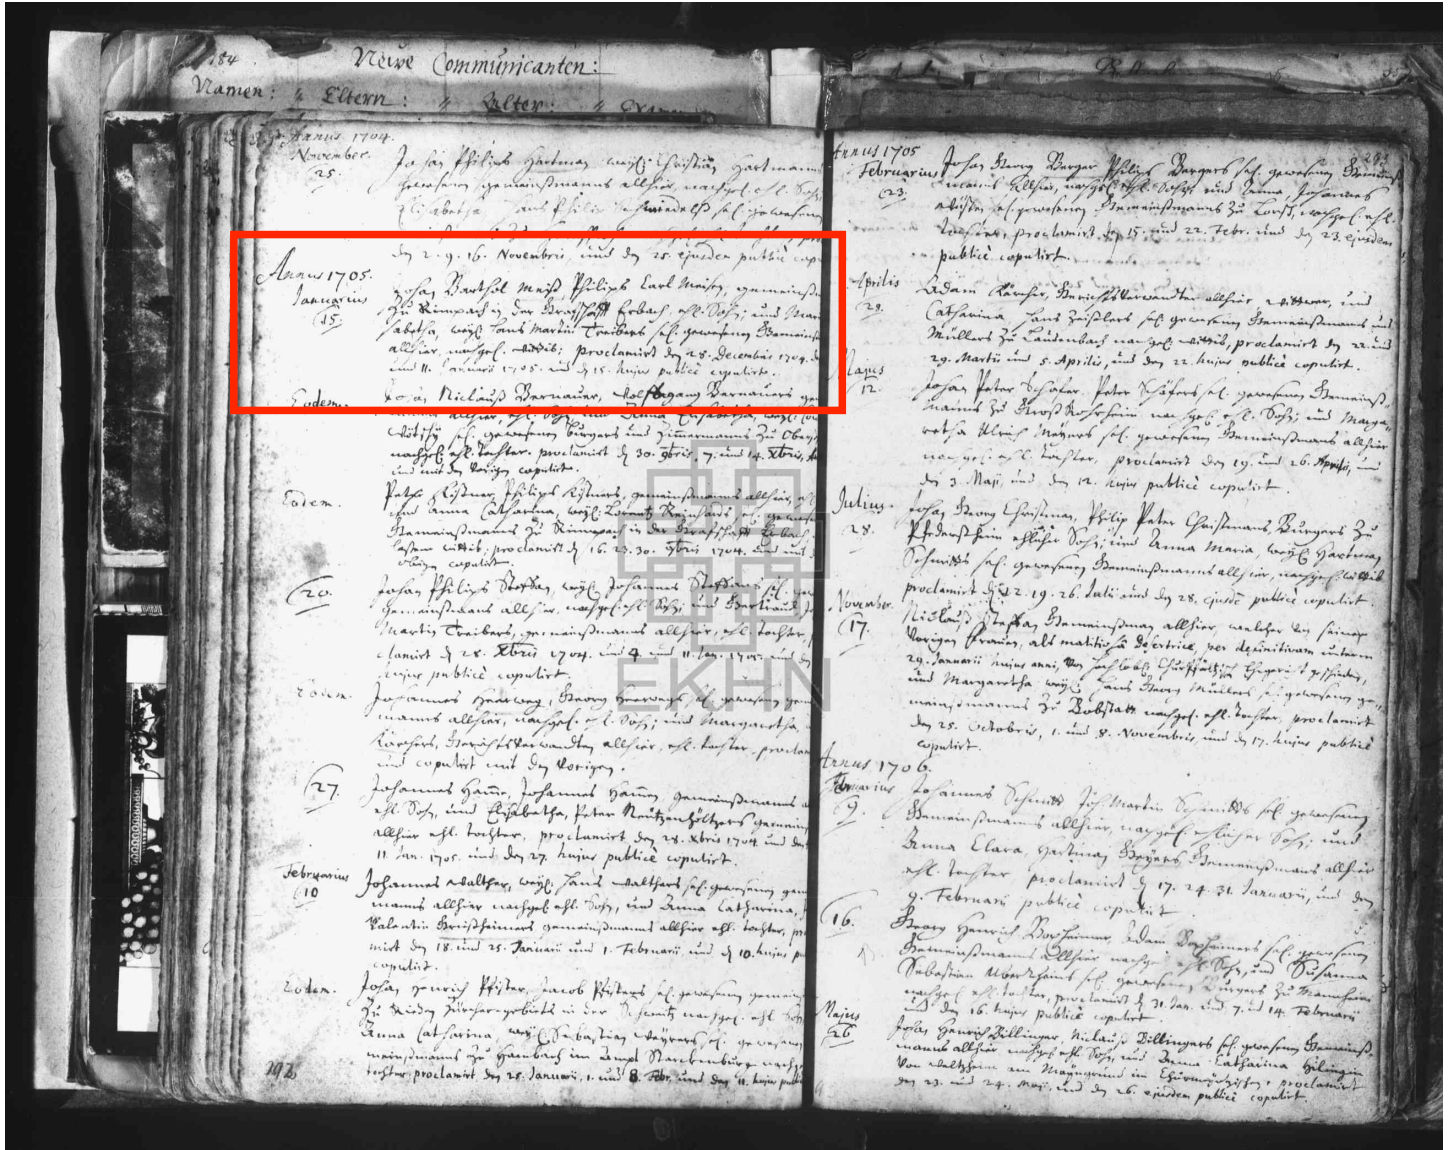 184.
Neüe Communicanten:
Namen: " Eltern: " Alter: "
Annus 1704.
November.
25.
Johan Philips Hartman, weyl: Christian Hartmans
gewesenen gemeinßmanns allhier, nachgel. ehl. Sohn
Elisabetha Hans Philip sel. gewesenen
den 2. 9. 16. Novembris, und den 25. ejusdem publicè
Annus 1705.
Januarius
15.
Johan Barthol Meiß, Philips Carl Meisen, gemeinß
Zu Rimpach in der Graffschafft Erbach, ehl. Sohn; und
abetha, weyl: Hans Martin Treibers sel. gewesenen Gemeins
allhier, nachgel. wittib; proclamirt den 28. Decembris 1704.
und 11. Januarii 1705. und den 15. hujus publicè copulirt.
Eodem.
Johan Niclauß Bernauer, Wolffgang Bernauers
allhier, ehl. Sohn, und Anna Elisabetha, weyl.
sel. gewesenen bürgers und Zimmermanns Zu
nachgel. ehl. tochter. proclamirt d. 30. 9bris, 7. und 14. Xbris,
und mit den Vorigen copulirt.
Eodem.
Peter Kistner, Philips Kistners, gemeinßmanns allhier,
und Anna Catharina, weyl: Lorentz Reinhards sel.
Gemeinßmanns Zu Rimpach in der Graffschafft Erbach
wittib; proclamirt d. 16. 23. 30. 9bris 1704. und mit
copulirt.
20.
Johan Philips Steffan, weyl: Johannes Steffans sel.
gemeinßmanns allhier, nachgel. ehl. Sohn; und Gertraud,
Martin Treibers, gemeinßmanns allhier, ehl. tochter,
clamirt d. 28. Xbris 1704. und 4. und 11. Jan. 1705. und den
hujus publicè copulirt.
Eodem.
Johannes Herweg, Georg Herwegs sel. gewesenen
manns allhier, nachgel. ehl. Sohn; und Margaretha,
Kärchers, Gerichtsverwandten allhier, ehl. tochter,
und copulirt mit den Vorigen.
27.
Johannes Hamm, Johannes Hammen gemeinßmanns
ehl. Sohn, und Elisabetha, Peter
allhier ehl. tochter, proclamirt den 28. Xbris 1704 und den
11. Jan. 1705. und den 27. hujus publicè copulirt.
Februarius
10
Johannes Walther, weyl: Hans Walthers sel. gewesenen
manns allhier nachgel. ehl. Sohn, und Anna Catharina,
Valentin gemeinßmanns allhier ehl. tochter,
mirt den 18. und 25. Januarii und 1. Februarii, und d. 10. hujus
copulirt.
Eodem.
Johan Henrich Pfister, Jacob Pfisters sel. gewesenen
Zu Zürcher-gebiets in der Schweitz nachgel. ehl. Sohn
Anna Catharina, weyl: Sebastian Weyrers sel. gewesenen
meinßmanns Zu Hambach im Ampt Starckenburg
tochter, proclamirt den 25. Januarii, 1. und 8. Febr. und den 11. hujus
292
293
Annus 1705
Februarius
23.
Johan Georg Berger Philips Bergers sel. gewesenen
manns allhier, nachgel. ehl. Sohn und Anna, Johannes
sel. gewesenen Gemeinßmanns Zu Lorsch, nachgel. ehl.
tochter, proclamirt den 15. und 22. Febr. und den 23. ejusdem
publicè copulirt.
Aprilis
29.
Adam Kärcher, Gerichtsverwandter allhier, wittwer, und
Catharina, Hans Zeißlers sel. gewesenen Gemeinßmanns und
Müllers Zu Laudenbach nachgel. wittib, proclamirt den 22. und
29. Martii und 5. Aprilis, und den 22. hujus publicè copulirt.
Majus
12.
Johan Peter Schäfer, Peter Schäfers sel. gewesenen Gemeinß-
manns Zu Groß Rohrheim nachgel. ehl. Sohn; und Marga-
retha Ulrich Mayers sel. gewesenen Gemeinßmans allhier
nachgel. ehl. tochter, proclamirt den 19. und 26. Aprilis, und
den 3. Maji, und den 12. hujus publicè copulirt.
Julius
28.
Johan Georg Christman, Philip Peter Christmans, Burgers Zu
Pfedersheim ehlicher Sohn; und Anna Maria, weyl. Hartman
Schmitts sel. gewesenen Gemeinßmanns allhier, nachgel. wittib
proclamirt d. 12. 19. 26. Julii und den 28. ejusdē publicè copulirt.
November.
17.
Niclauß Steffan Gemeinßman allhier, welcher von seiner
Vorigen frauen, als malitiosâ desertrice, per definitivam
29. Januarii hujus anni, von Churpfältzisch Ehegericht geschieden,
und Margaretha weyl. Hans Georg Müllers sel. gewesenen ge-
meinßmanns Zu Bobstatt nachgel. ehl. tochter, proclamirt
den 25. Octobris, 1. und 8. Novembris, und d. 17. hujus publicè
copulirt.
Annus 1706.
Februarius
9.
Johannes Schmitt, Joh. Martin Schmitts sel. gewesenen
Gemeinßmanns allhier, nachgel. ehlicher Sohn; und
Anna Clara, Hartman Geyers Gemeinßmans allhier
ehl. tochter proclamirt d. 17. 24. 31. Januarii, und den
9. Februarii publicè copulirt.
16.
Georg Henrich Boxheimer, Adam Boxheimers sel. gewesenen
Gemeinßmanns allhier nachgel. ehl. Sohn, und Susanna
Sebastian sel. gewesenen Burgers Zu Mannheim
nachgel. ehl. tochter, proclamirt d. 31. Jan. und 7. und 14. Februarii
und den 16. hujus publicè copulirt.
Majus
26
Johan Henrich Billinger, Niclauß Billingers sel. gewesenen Gemeinß-
manns allhier nachgel. ehl. Sohn, und Anna Catharina
von am proclamirt
den 23. und 24. Maji, und den 26. ejusdem publicè copulirt.
EKHN